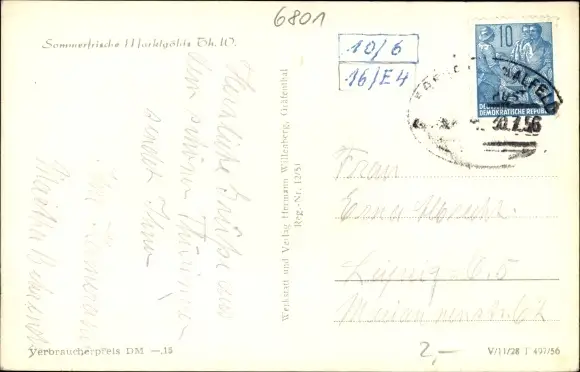 6801
Sommerfrische Marktgölitz Th. W.
10/6
16/E4
10
DEUTSCHE
DEMOKRATISCHE REPUBLIK
SAALFELD
Herzliche Grüße aus
dem schönen Thüringen
sendet Ihnen
Ihre
Werkstatt und Verlag Hermann Wittenberg, Gräfenthal
Reg.-Nr. 12/51
Frau
Erna Albrecht
Leipzig C. 5
Verbraucherpreis DM —.15
2,-
V/11/28 T 497/56